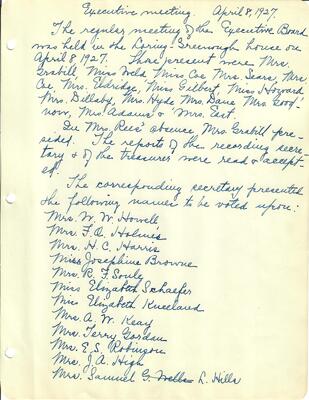 Executive meeting April 8, 1927.
The regular meeting of the Executive Board
was held in the Loring-Greenough house on
April 8, 1927. Those present were Mrs.
Grabill, Miss Weld, Miss Coe, Mrs. Sears, Mrs
Coe, Mrs. Eldridge, Miss Gilbert, Miss Howard
Mrs. Dillaby, Mrs. Hyde Mrs. Dane Mrs. Good-
now, Mrs. Adams & Mrs. East.
In Mrs. Rice's absence, Mrs. Grabill pre-
sided. The reports of the recording secre-
tary & of the treasurer were read & accept-
ed.
The corresponding secretary presented
the following names to be voted upon:
Mrs. W. W. Howell
Mrs. F. A. Holmes
Mrs. H. C. Harris
Miss Josephine Browne
Mrs. R. F. Soule
Miss Elizabeth Schaefer
Miss Elizabeth Kneeland
Mrs. A. W. Keay
Mrs. Terry Gordon
Mrs. E. S. Robinson
Mrs. J. A. High
Mrs. Samuel G. Wells L. Hills